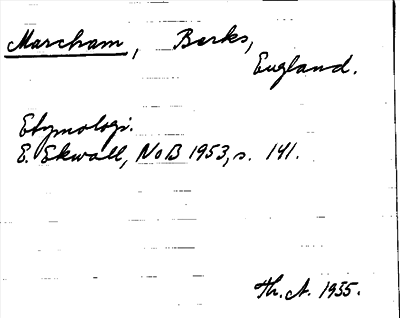 Marcham, Berks,
England.
Etymologi.
E. Ekwall, NoB 1953, s. 141.
Th. A. 1955.